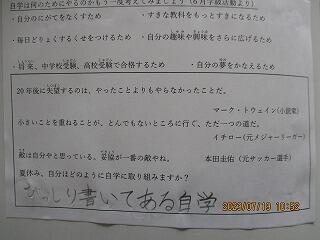 自学は何のためにやるのかもう一度考えてみましょう（６月学級活動より）
・自分のにがてをなくすため　・すきな教科をもっとすきになるため
・毎日どりょくするくせをつけるため　・自分の趣味や興味をさらに広げるため
・将来、中学校受験、高校受験で合格するため　・自分の夢をかなえるため
20年後に失望するのは、やったことよりもやらなかったことだ。
マーク・トウェイン（小説家）
小さいことを重ねることが、とんでもないところに行く、ただ一つの道だ。
イチロー（元メジャーリーガー）
敵は自分やと思っている。妥協が一番の敵やね。　本田圭佑（元サッカー選手）
夏休み、自分はどのように自学に取り組みますか？
びっしり書いてある自学
2023/07/19 10:32